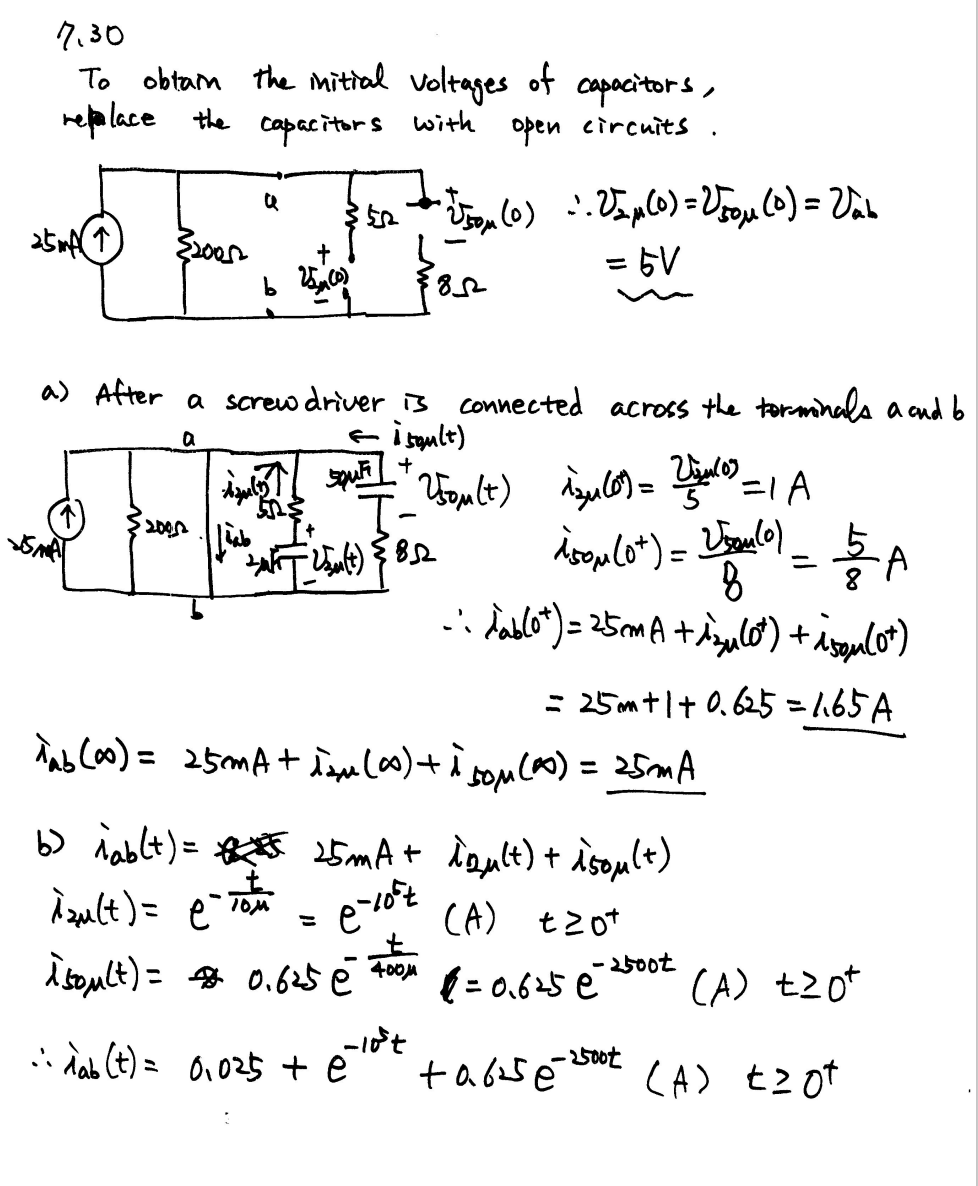 7.30
To obtain the initial voltages of capacitors,
replace the capacitors with open circuits.
a
25mA
200Ω
5Ω
+
v50μ(0)
−
∴ v2μ(0) = v50μ(0) = vab
= 5V
b
+
v2μ(0)
−
8Ω
a) After a screwdriver is connected across the terminals a and b
a
← i50μ(t)
25mA
200Ω
iab
i2μ(t)
5Ω
2μF
+
v2μ(t)
−
50μF
+
v50μ(t)
−
8Ω
b
i2μ(0+) = v2μ(0)/5 = 1 A
i50μ(0+) = v50μ(0)/8 = 5/8 A
∴ iab(0+) = 25mA + i2μ(0+) + i50μ(0+)
= 25m + 1 + 0.625 = 1.65 A
iab(∞) = 25mA + i2μ(∞) + i50μ(∞) = 25mA
b) iab(t) = 25mA + i2μ(t) + i50μ(t)
i2μ(t) = e^(-t/10μ) = e^(-10^5t) (A) t ≥ 0+
i50μ(t) = 0.625 e^(-t/400μ) = 0.625 e^(-2500t) (A) t ≥ 0+
∴ iab(t) = 0.025 + e^(-10^5t) + 0.625 e^(-2500t) (A) t ≥ 0+